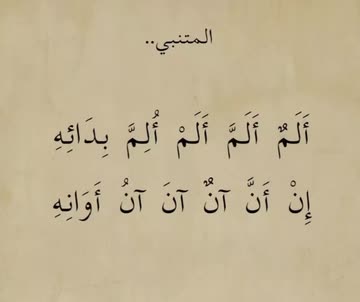 المتنبي..
أَلَمٌ أَلَمَّ أَلَمْ أُلِمَّ بِدَائِهِ
إِنْ أَنَّ آنٌ آنَ آنُ أَوَانِهِ